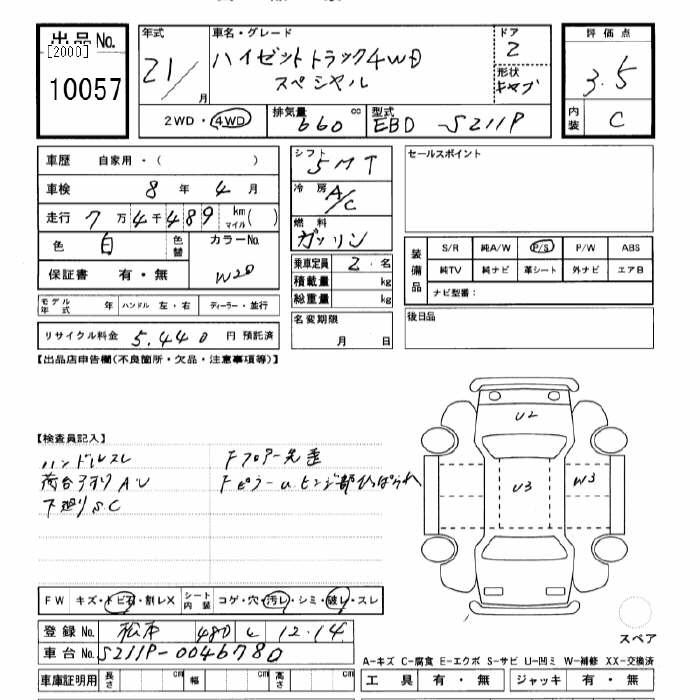 出品No.
[2000]
10057
年式
21/
月
車名・グレード
ハイゼットトラック4WD
スペシャル
ドア
2
形状
キャブ
2WD・4WD
排気量 660 cc
型式 EBD-S211P
評価点
3.5
内装 C
車歴 自家用・( )
車検 8年 4月
走行 7万4千489 km マイル( )
色 白 色替
カラーNo. W20
保証書 有・無
モデル年式 年 ハンドル 左・右 ディーラー・並行
リサイクル料金 5,440 円 預託済
シフト 5MT
冷房 A/C
燃料 ガソリン
乗車定員 2 名
積載量 kg
総重量 kg
名変期限
月 日
セールスポイント
装備品
S/R 純A/W P/S P/W ABS
純TV 純ナビ 革シート 外ナビ エアB
ナビ型番:
後日品
【出品店申告欄(不良箇所・欠品・注意事項等)】
【検査員記入】
ハンドルスレ
荷台アオリ A.U
下廻りS.C
Fフロアー先歪
Fピラーu ヒンジ部ひっぱられ
U2
U3
W3
FW キズ・トビ石・割レX
シート内装 コゲ・穴・汚レ・シミ・破レ・スレ
登録No. 松本 480 く 12-14
車台No. S211P-0046780
車庫証明用 長さ cm 幅 cm 高さ cm
スペア
A-キズ C-腐食 E-エクボ S-サビ U-凹ミ W-補修 XX-交換済
工具 有・無 ジャッキ 有・無